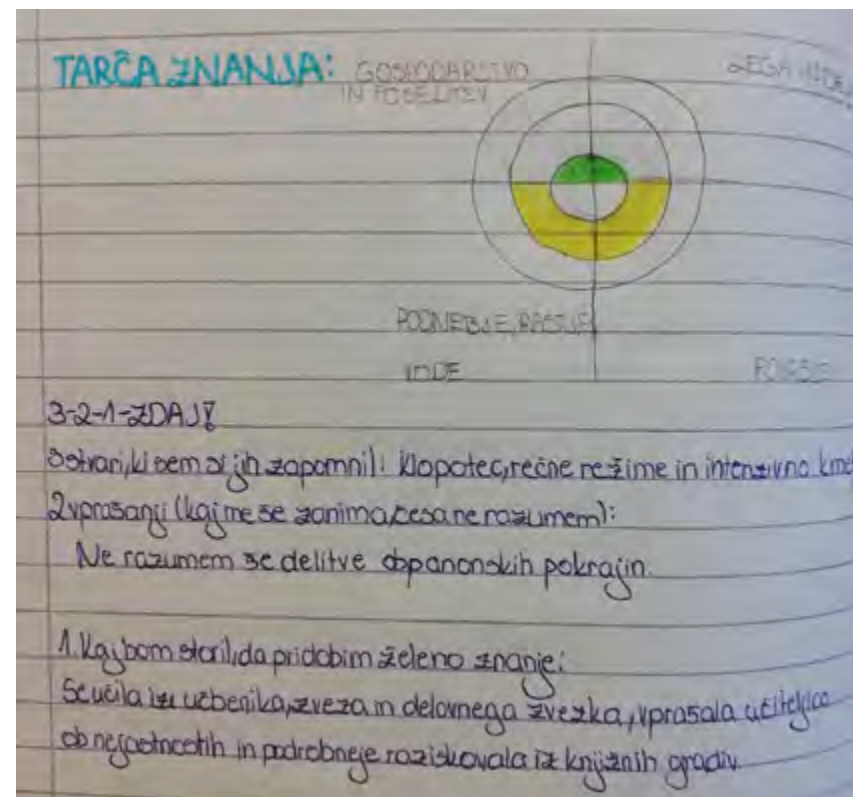 TARČA ZNANJA: GOSPODARSTVO
IN POSELITEV
LEGA IN
PODNEBJE, RASTJE
VODE
POVRŠJE
3-2-1-ZDAJ!
3 stvari, ki sem si jih zapomnil: klopotec, rečne režime in intenzivno
2 vprašanji (kaj me še zanima, česa ne razumem):
Ne razumem še delitve obpanonskih pokrajin.
1. Kaj bom storil, da pridobim želeno znanje:
Se učila iz učbenika, zveza in delovnega zvezka, vprašala učiteljico
ob nejasnostih in podrobneje raziskovala iz knjižnih gradiv.